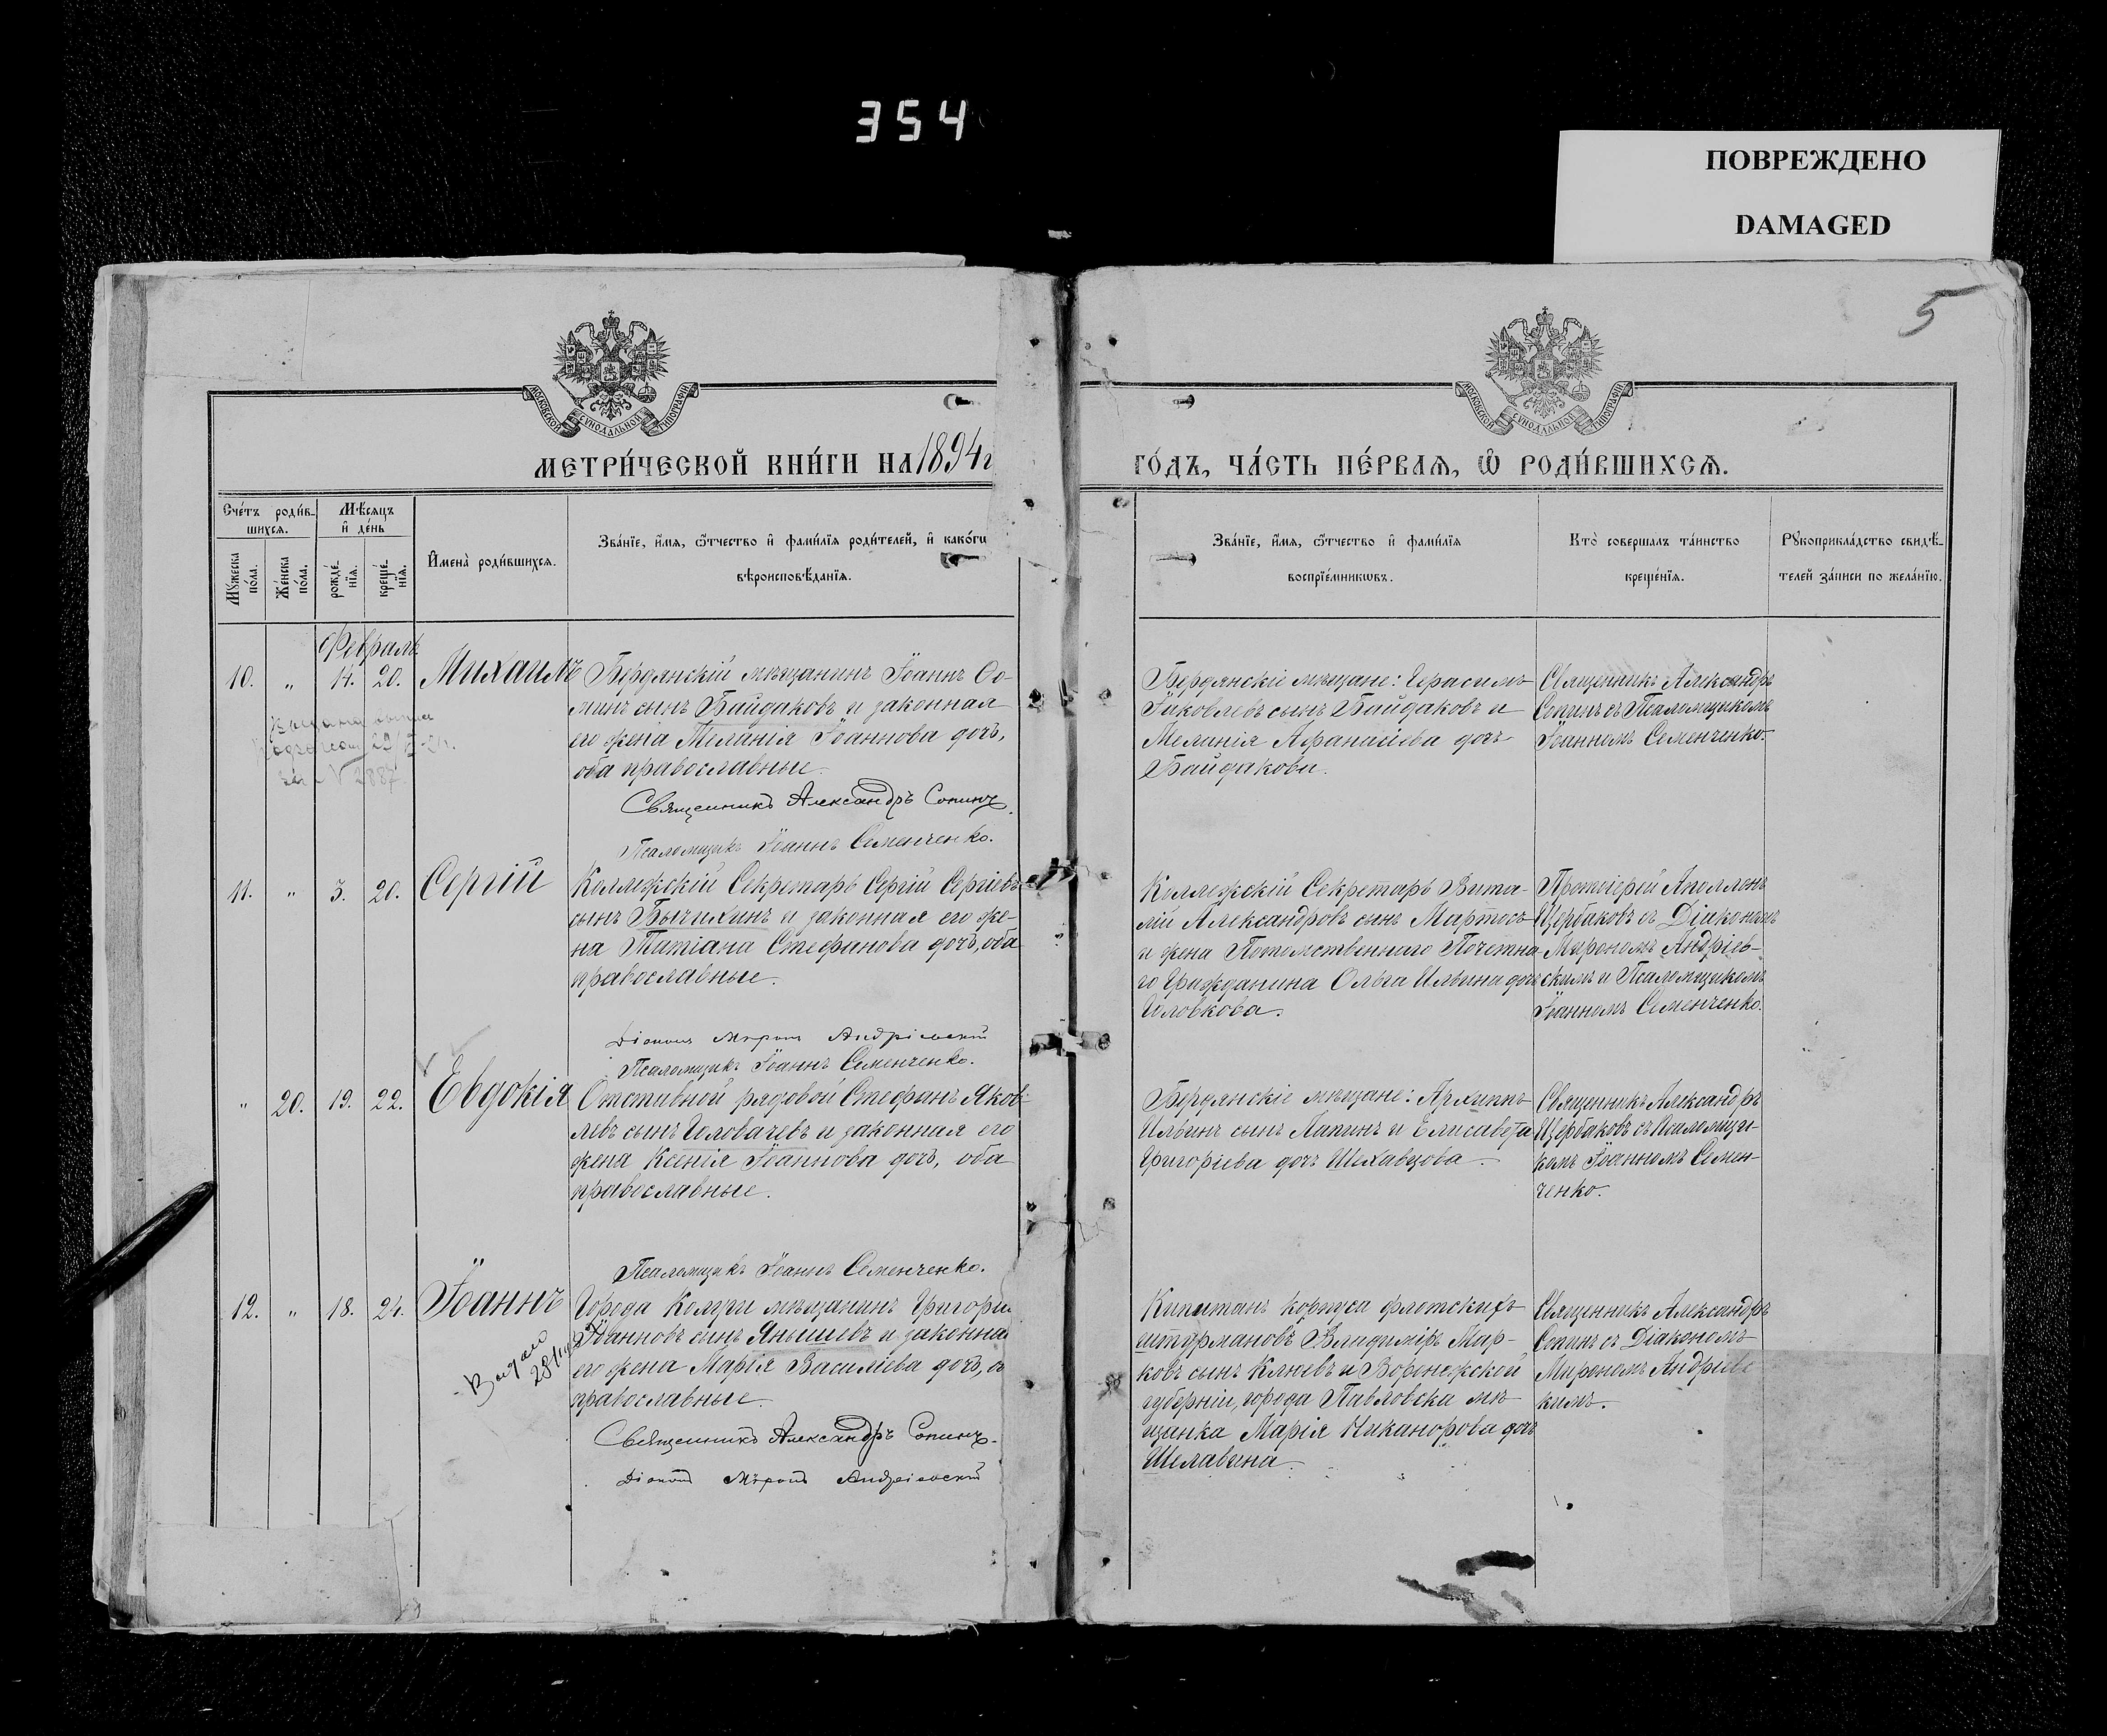 354
ПОВРЕЖДЕНО
DAMAGED
5
МОСКОВСКОЙ СѴНОДАЛЬНОЙ ТИПОГРАФІИ
МОСКОВСКОЙ СѴНОДАЛЬНОЙ ТИПОГРАФІИ
МЕТРИ́ЧЕСКОЙ КНИ́ГИ НА 1894 г
ГО́ДЪ, ЧА́СТЬ ПЕ́РВАѦ, Ѡ҆ РОДИ́ВШИХСѦ.
Сче́тъ роди́в-
шихсѧ.
Мѣ́сяцъ
и҆ де́нь
Мꙋ́жеска
по́ла.
Же́нска
по́ла.
рожде́-
нїѧ.
креще́-
нїѧ.
И҆мена̀ роди́вшихсѧ.
Зва́нїе, и҆́мѧ, ѻ҆́тчество и҆ фами́лїѧ роди́телей, и҆ како́гѡ
вѣроисповѣ́данїѧ.
Зва́нїе, и҆́мѧ, ѻ҆́тчество и҆ фами́лїѧ
воспрїе́мникѡвъ.
Кто̀ соверша́лъ та́инство
креще́нїѧ.
Рꙋкоприкла́дство свидѣ́-
телей за́писи по жела́нїю.
Февраль
10. " 14. 20. Михаилъ
Бердянскій мѣщанинъ Іоаннъ Ѳо-
минъ сынъ Байдаковъ и законная
его жена Меланія Іоаннова дочь,
оба православные.
Священникъ Александръ Сопинъ.
Псаломщикъ Іоаннъ Семенченко.
Бердянскіе мѣщане: Герасимъ
Яковлевъ сынъ Байдаковъ и
Меланія Афанасіева дочь
Байдакова.
Священникъ Александръ
Сопинъ съ Псаломщикомъ
Іоанномъ Семенченко.
11. " 3. 20. Сергій
Коллежскій Секретарь Сергій Сергіевъ
сынъ Бычихинъ и законная его же-
на Татіана Стефанова дочь, оба
православные.
Діаконъ Миронъ Андріевскій
Псаломщикъ Іоаннъ Семенченко.
Коллежскій Секретарь Вита-
лій Александровъ сынъ Мартосъ
и жена Потомственнаго Почетна-
го Гражданина Ольга Ильина дочь
Головкова.
Протоіерей Аполлонъ
Щербаковъ съ Діакономъ
Мирономъ Андріев-
скимъ и Псаломщикомъ
Іоанномъ Семенченко.
" 20. 19. 22. Евдокія
Отставной рядовой Стефанъ Яков-
левъ сынъ Головачевъ и законная его
жена Ксенія Іоаннова дочь, оба
православные.
Псаломщикъ Іоаннъ Семенченко.
Бердянскіе мѣщане: Архиппъ
Ильинъ сынъ Лапинъ и Елисавета
Григоріева дочь Шехавцова.
Священникъ Александръ
Щербаковъ съ Псаломщи-
комъ Іоанномъ Семен-
ченко.
12. " 18. 24. Іоаннъ
Города Калуги мѣщанинъ Григорій
Іоанновъ сынъ Янышевъ и законная
его жена Марія Василіева дочь, о
православные.
Священникъ Александръ Сопинъ.
Діаконъ Миронъ Андріевскій
Капитанъ корпуса флотскихъ
штурмановъ Владиміръ Мар-
ковъ сынъ Клюевъ и Воронежской
губерніи, города Павловска мѣ-
щанка Марія Никанорова дочь
Шелавина.
Священникъ Александръ
Сопинъ съ Діакономъ
Мирономъ Андріевс
кимъ.